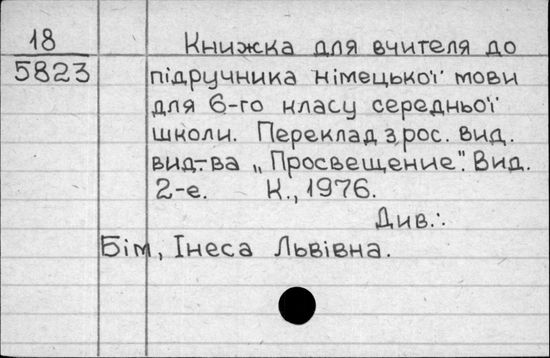 18
5823
Книжка для вчителя до
підручника німецької мови
для 6-го класу середньої
школи. Переклад з рос. вид.
вид-ва „Просвещение". Вид.
2-е. К., 1976.
Див.:
Бім, Інеса Львівна.